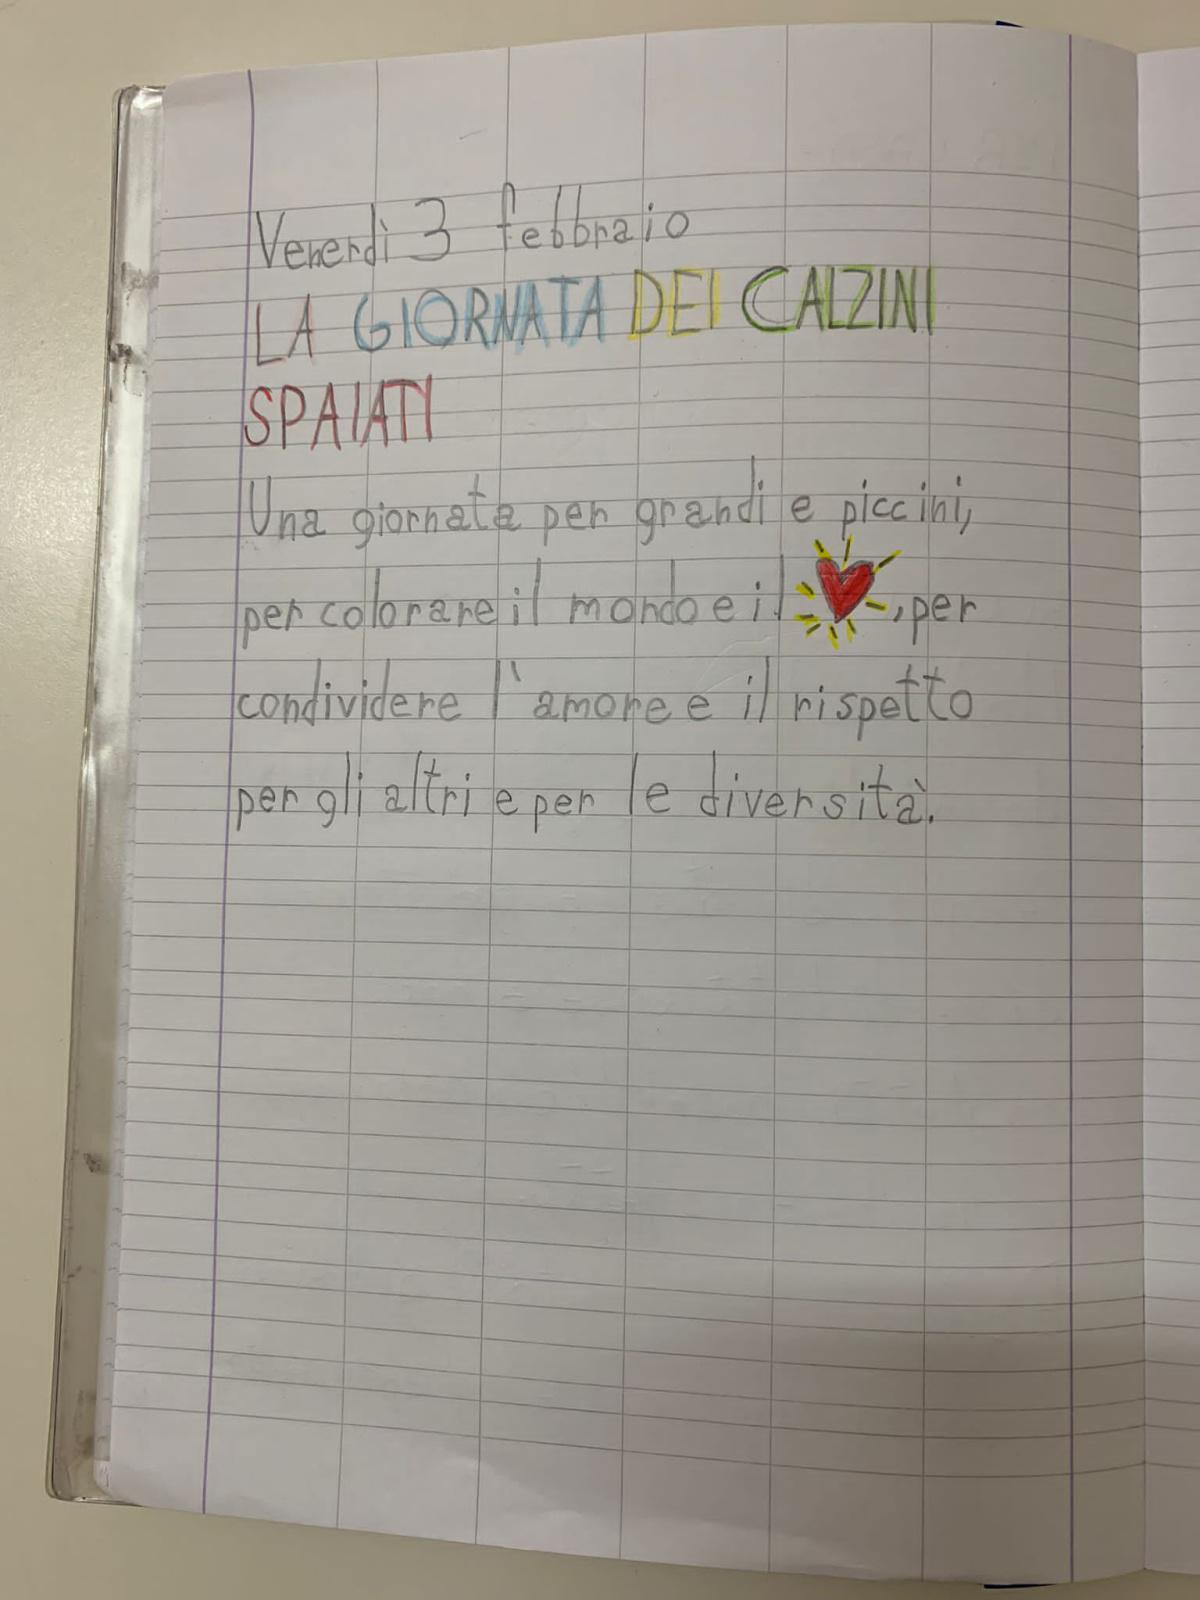 Venerdì 3 febbraio
LA GIORNATA DEI CALZINI
SPAIATI
Una giornata per grandi e piccini,
per colorare il mondo e il ❤️, per
condividere l'amore e il rispetto
per gli altri e per le diversità.